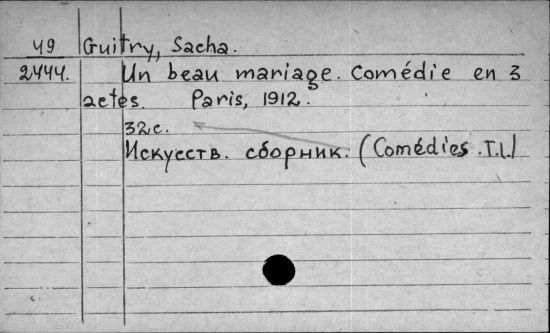 49 Guitry, Sacha.
2444. Un beau mariage. Comédie en 3
actes. Paris, 1912.
32с.
Искусств. сборник. (Comédies. T.I.)